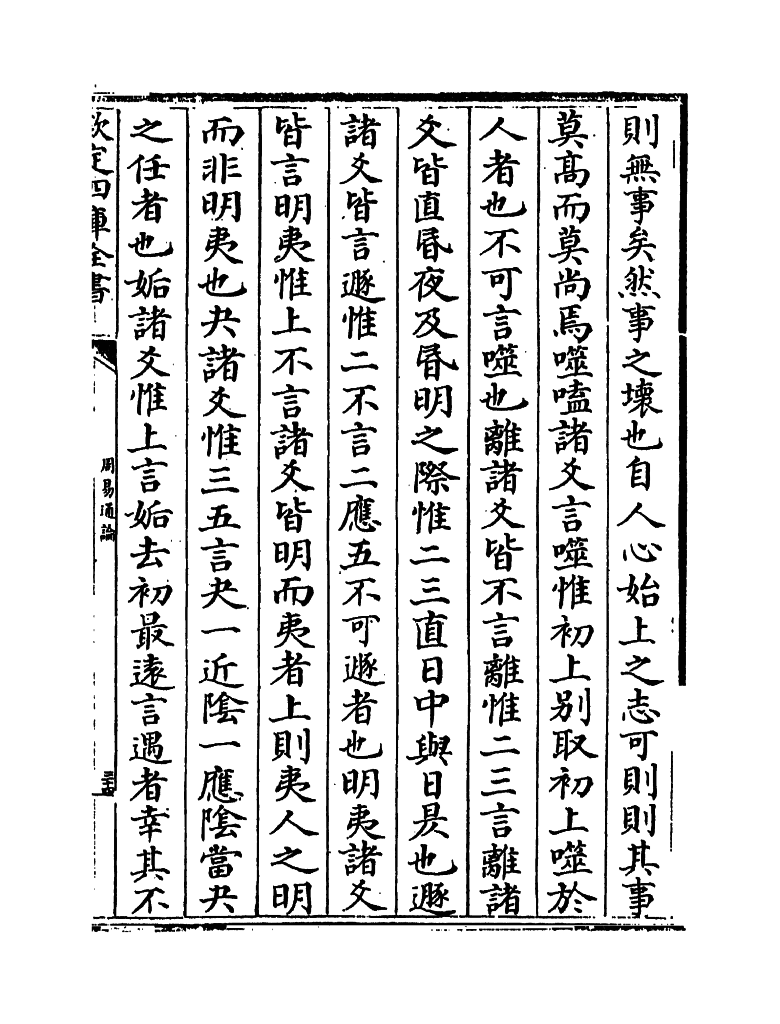 則無事矣然事之壞也自人心始上之志可則則其事
莫髙而莫尚焉噬嗑諸爻言噬惟初上别取初上噬於
人者也不可言噬也離諸爻皆不言離惟二三言離諸
爻皆直昏夜及昏明之際惟二三直日中與日昃也遯
諸爻皆言遯惟二不言二應五不可遯者也明夷諸爻
皆言明夷惟上不言諸爻皆明而夷者上則夷人之明
而非明夷也夬諸爻惟三五言夬一近隂一應隂當夬
之任者也姤諸爻惟上言姤去初最逺言遇者幸其不
欽定四庫全書
周易通論
三十五